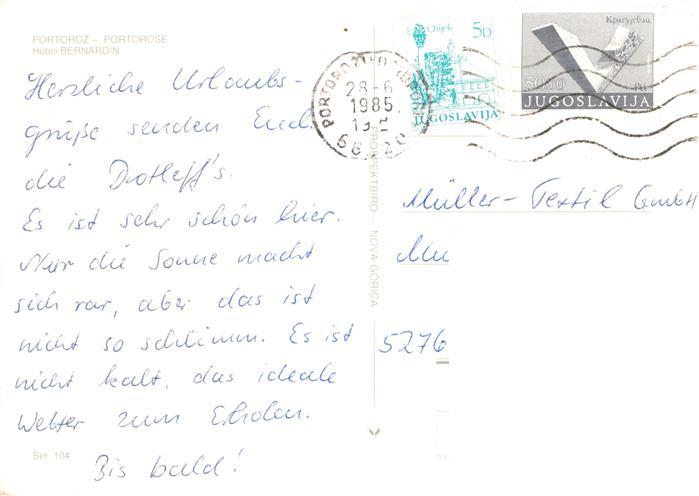 PORTOROŽ — PORTOROSE
Hoteli BERNARDIN
Herzliche Urlaubs-
grüße senden Euch
die Dotleff's.
Es ist sehr schön hier.
Nur die Sonne macht
sich rar, aber das ist
nicht so schlimm. Es ist
nicht kalt, das ideale
Wetter zum Erholen.
Bis bald!
Ser. 104
PROSPEKTBIRO — NOVA GORICA
28-6
1985
Osijek
5D
JUGOSLAVIJA
Крагујевац
JUGOSLAVIJA
Müller-Textil GmbH
Mu
5276